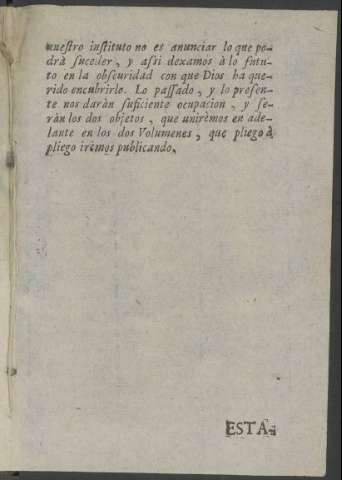 nuestro instituto no es anunciar lo que po-
drà suceder, y assi dexamos à lo futu-
ro en la obscuridad con que Dios ha que-
rido encubrirle. Lo passado, y lo presen-
te nos daràn suficiente ocupacion, y se-
ràn los dos objetos, que unirèmos en ade-
lante en los dos Volumenes, que pliego à
pliego irèmos publicando.
ESTA-